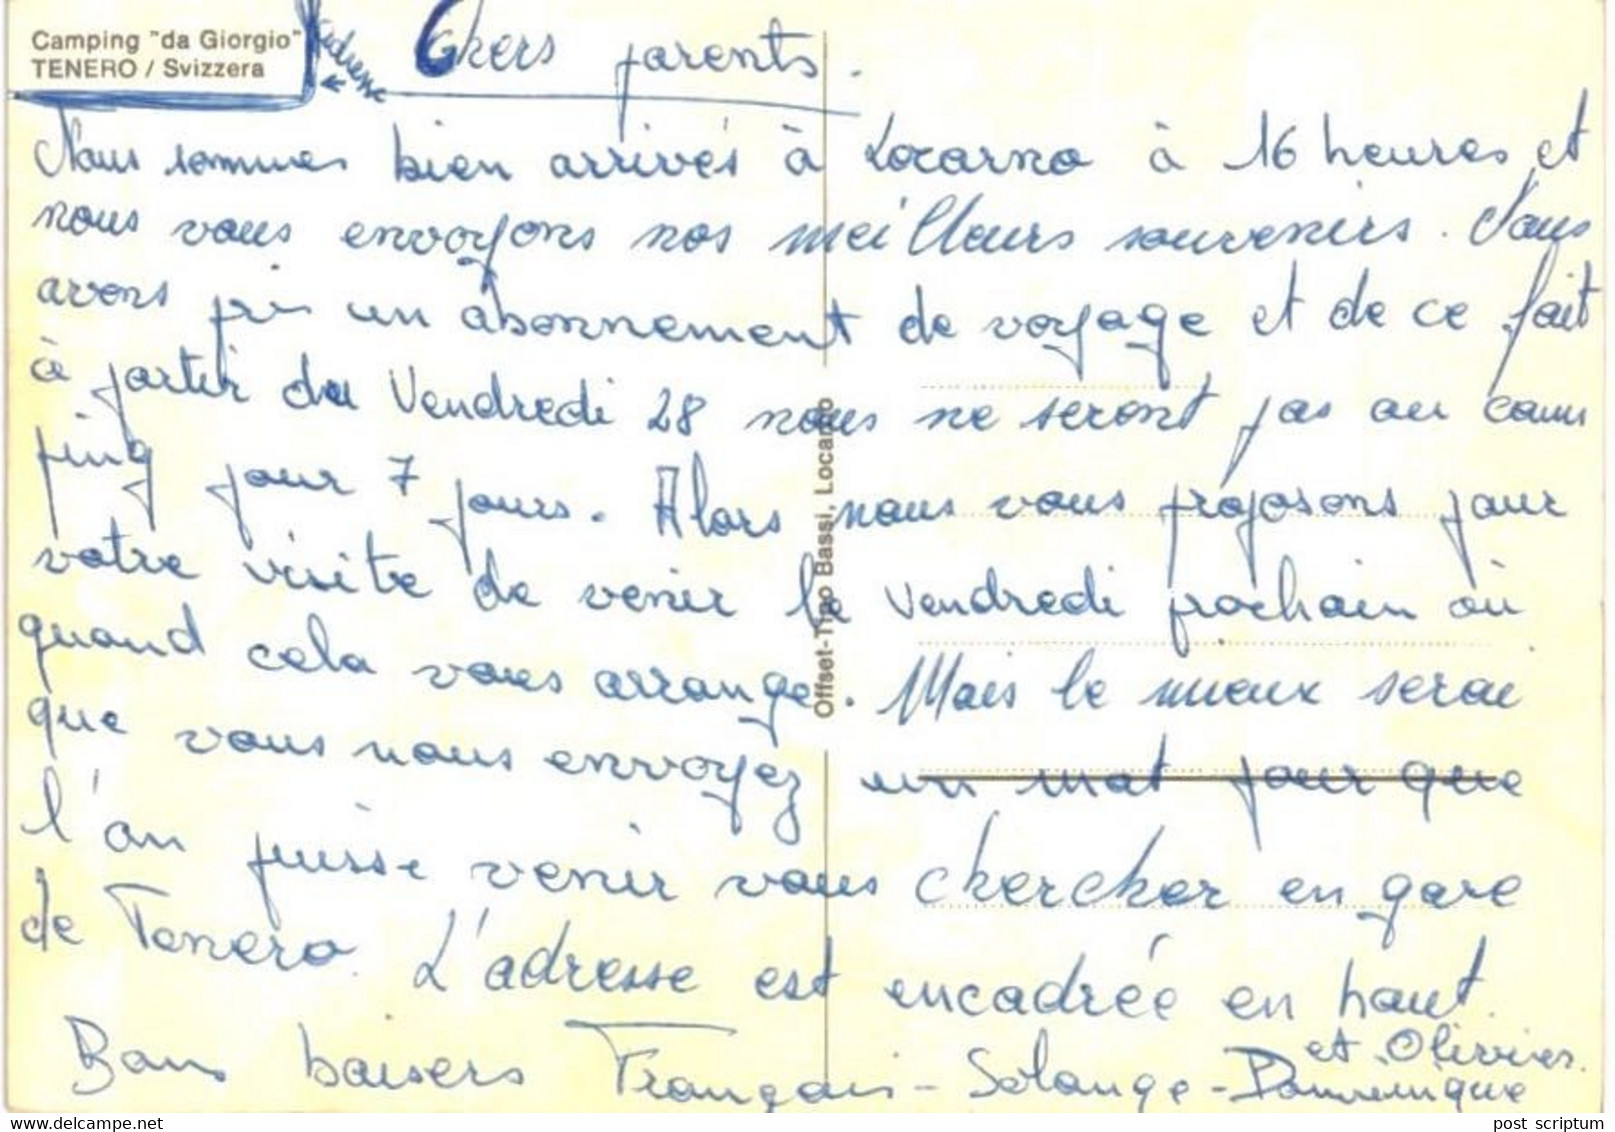 Camping "da Giorgio"
TENERO / Svizzera
adresse
Chers parents.
Nous sommes bien arrivés à Locarno à 16 heures et
nous vous envoyons nos meilleurs souvenirs. Nous
avons pris un abonnement de voyage et de ce fait
à partir du Vendredi 28 nous ne seront pas au cam
ping pour 7 jours. Alors nous vous proposons pour
votre visite de venir le Vendredi prochain où
quand cela vous arrange. Mais le mieux serai
que vous nous envoyez un mot pour que
l'on puisse venir vous chercher en gare
de Tenero. L'adresse est encadrée en haut.
Bons baisers François - Solange - Dominique
et Olivier.
Offset-Tipo Bassi, Locarno
post scriptum